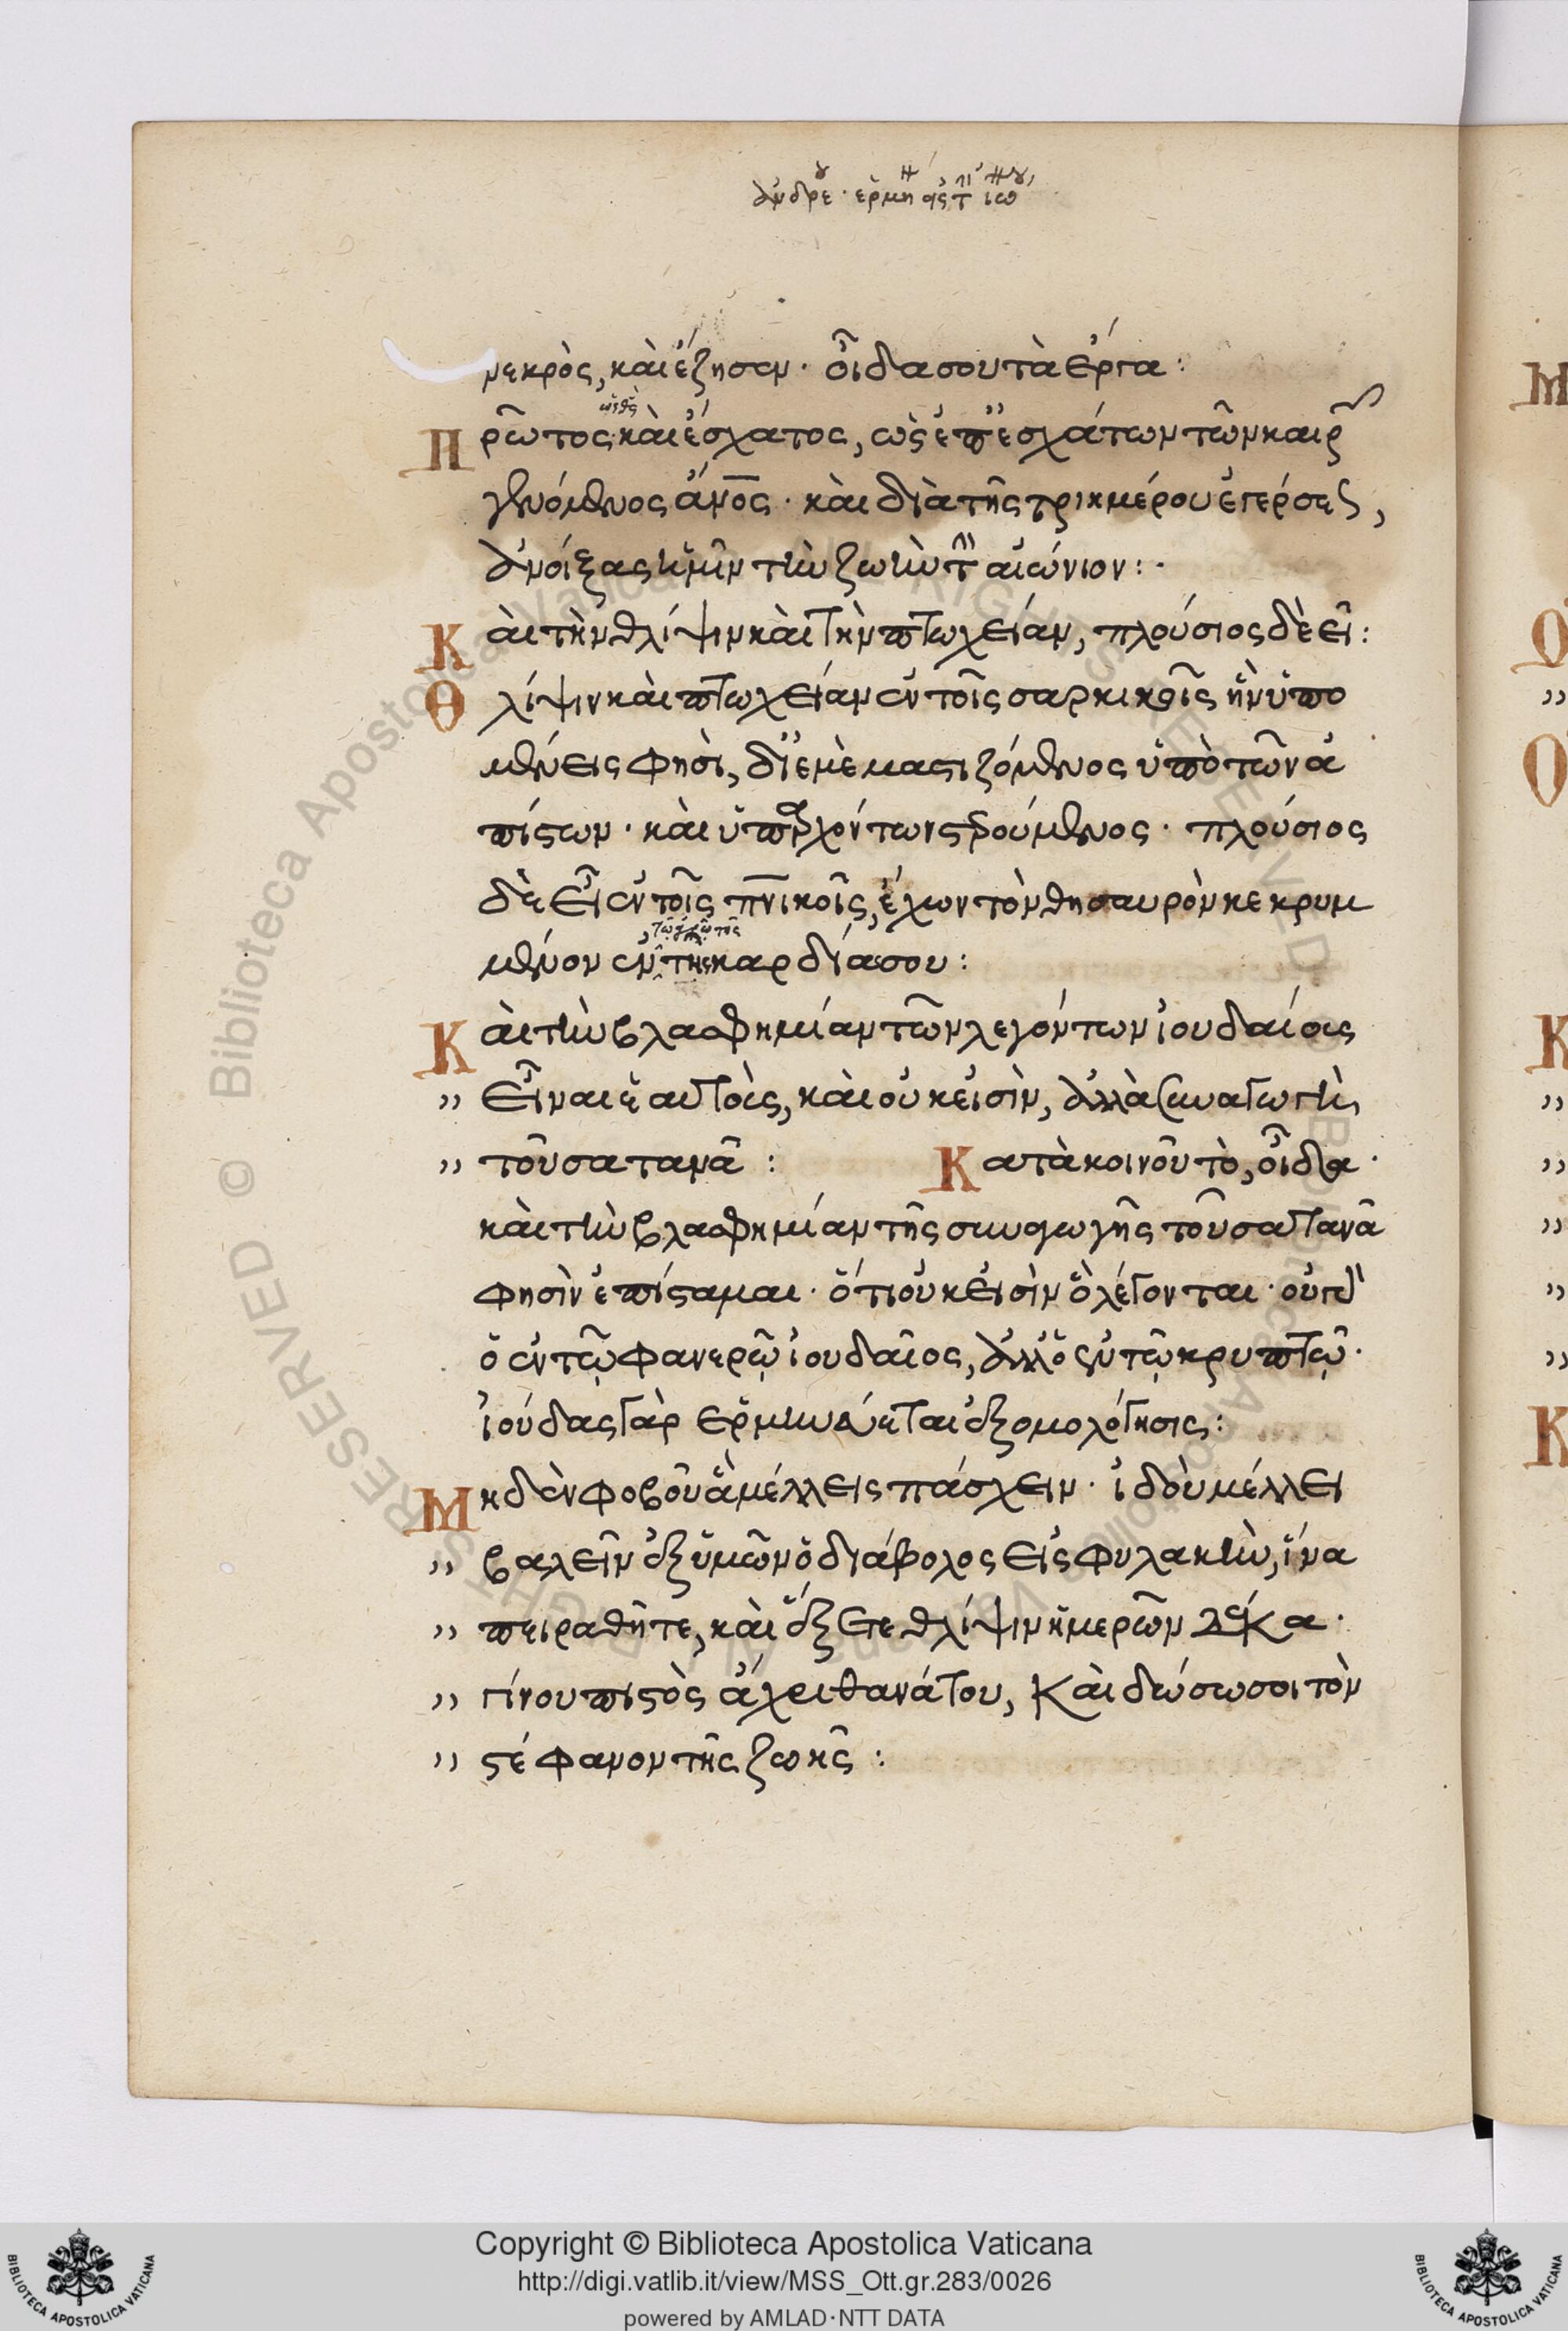 νεκρὸς, καὶ ἔζησεν · οἶδα σου τὰ ἔργα :
Πρῶτος καὶ ἔσχατος, ὡς ἐπ' ἐσχάτων τῶν καιρ
γενόμενος ἄνος · καὶ διὰ τῆς τριημέρου ἐγέρσεως,
ἀνοίξας ἡμῖν τὴν ζωὴν τὴν αἰώνιον : ·
Καὶ τὴν θλίψιν καὶ τὴν πτωχείαν, πλούσιος δὲ εἶ :
Θλίψιν καὶ πτωχείαν ἐν τοῖς σαρκικοῖς ἣν ὑπο
μένεις φησὶ, δι' ἐμὲ μαστιζόμενος ὑπὸ τῶν ἀ
πίστων · καὶ ὑπαρχόντων στερούμενος · πλούσιος
δὲ εἶ ἐν τοῖς πνικοῖς, ἔχων τὸν θησαυρὸν κεκρυμ
μένον ἐν τῆς καρδίας σου :
Καὶ τὴν βλασφημίαν τῶν λεγόντων ἰουδαίους
" εἶναι ἑαυτοὺς, καὶ οὐκ εἰσὶν, ἀλλὰ συναγωγὴ
" τοῦ σατανᾶ : Κατὰ κοινοῦ τὸ, οἶδα ·
καὶ τὴν βλασφημίαν τῆς συναγωγῆς τοῦ σατανᾶ
φησὶν ἐπίσταμαι · ὅτι οὐκ εἰσὶν ὃ λέγονται · οὐ γὰρ
ὁ ἐν τῷ φανερῷ ἰουδαῖος, ἀλλ' ὃς ἐν τῷ κρυπτῷ ·
ἰούδας γὰρ ἑρμηνεύεται ἐξομολόγησις :
Μηδὲν φοβοῦ ἃ μέλλεις πάσχειν · ἰδοὺ μέλλει
" βαλεῖν ἐξ ὑμῶν ὁ διάβολος εἰς φυλακὴν, ἵνα
" πειραθῆτε, καὶ ἕξετε θλίψιν ἡμερῶν δέκα ·
" γίνου πιστὸς ἄχρι θανάτου, καὶ δώσω σοι τὸν
" στέφανον τῆς ζωῆς :
Copyright © Biblioteca Apostolica Vaticana
http://digi.vatlib.it/view/MSS_Ott.gr.283/0026
powered by AMLAD·NTT DATA